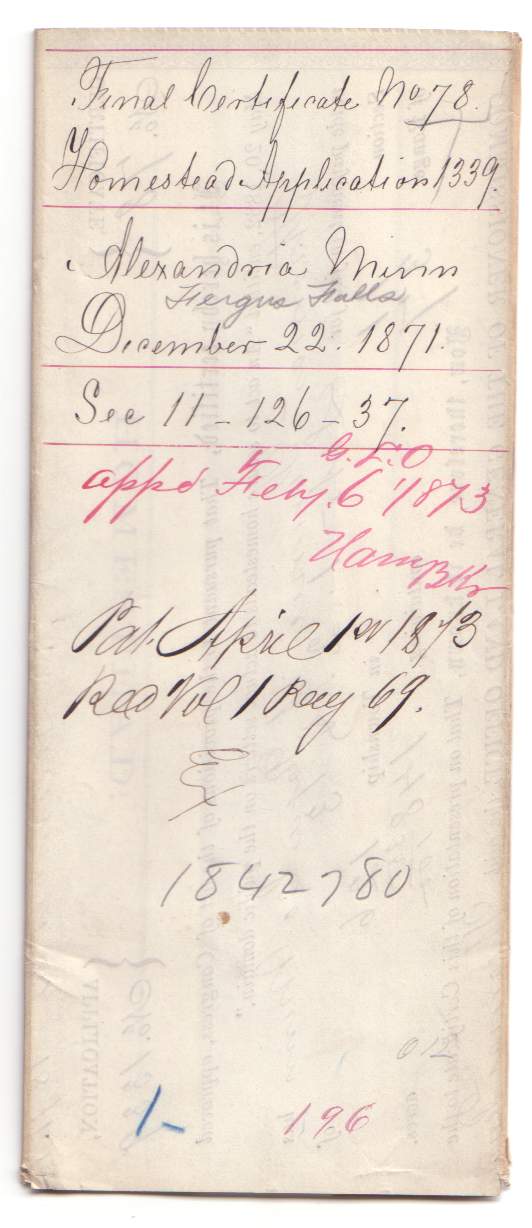 Final Certificate No 78.
Homestead Application 1339.
Alexandria Minn
Fergus Falls
December 22. 1871.
Sec 11 - 126 - 37.
G.L.O
appd Feby. 6 1873
Pat. April 1st 1873
Recd Vol 1 Pag 69.
Ex
1842780
012
1-
196